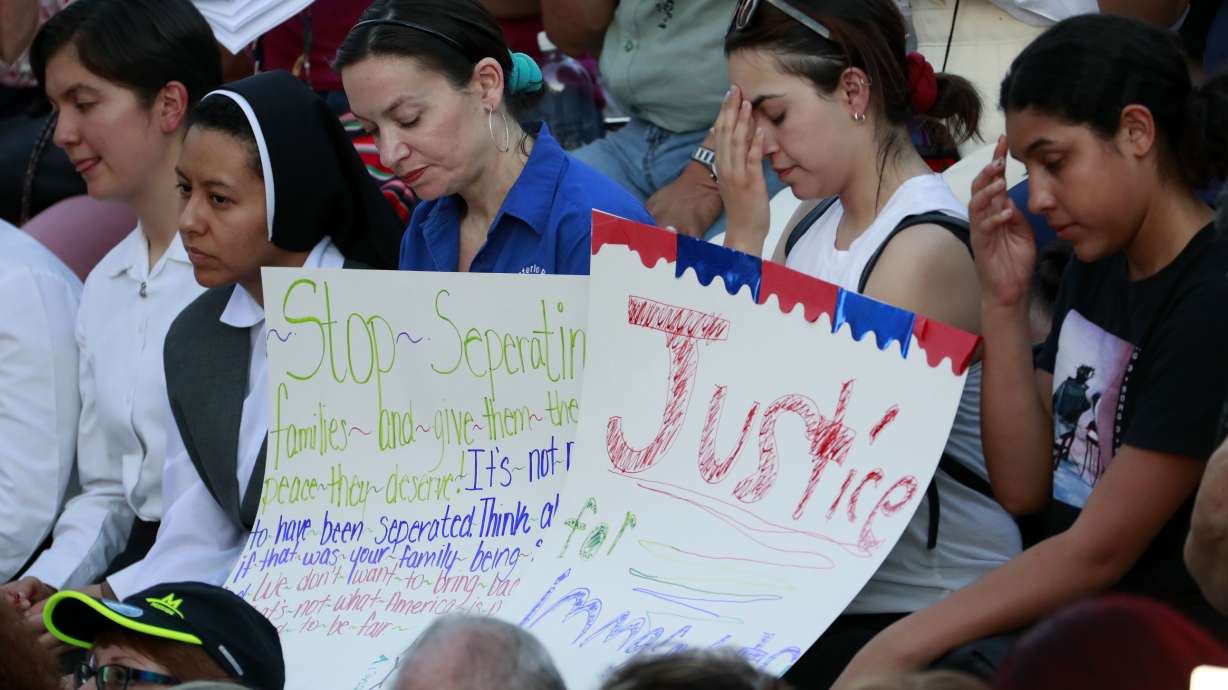 ~Stop~Seperatin
families~and~give~them~the
peace~they~deserve! It's~not~
to~have~been~seperated. Think~a
if~that~was~your~family~being~
We~don't~want~to~bring~bac
that's~not~what~America~is
to~be~fair~
Justice
for